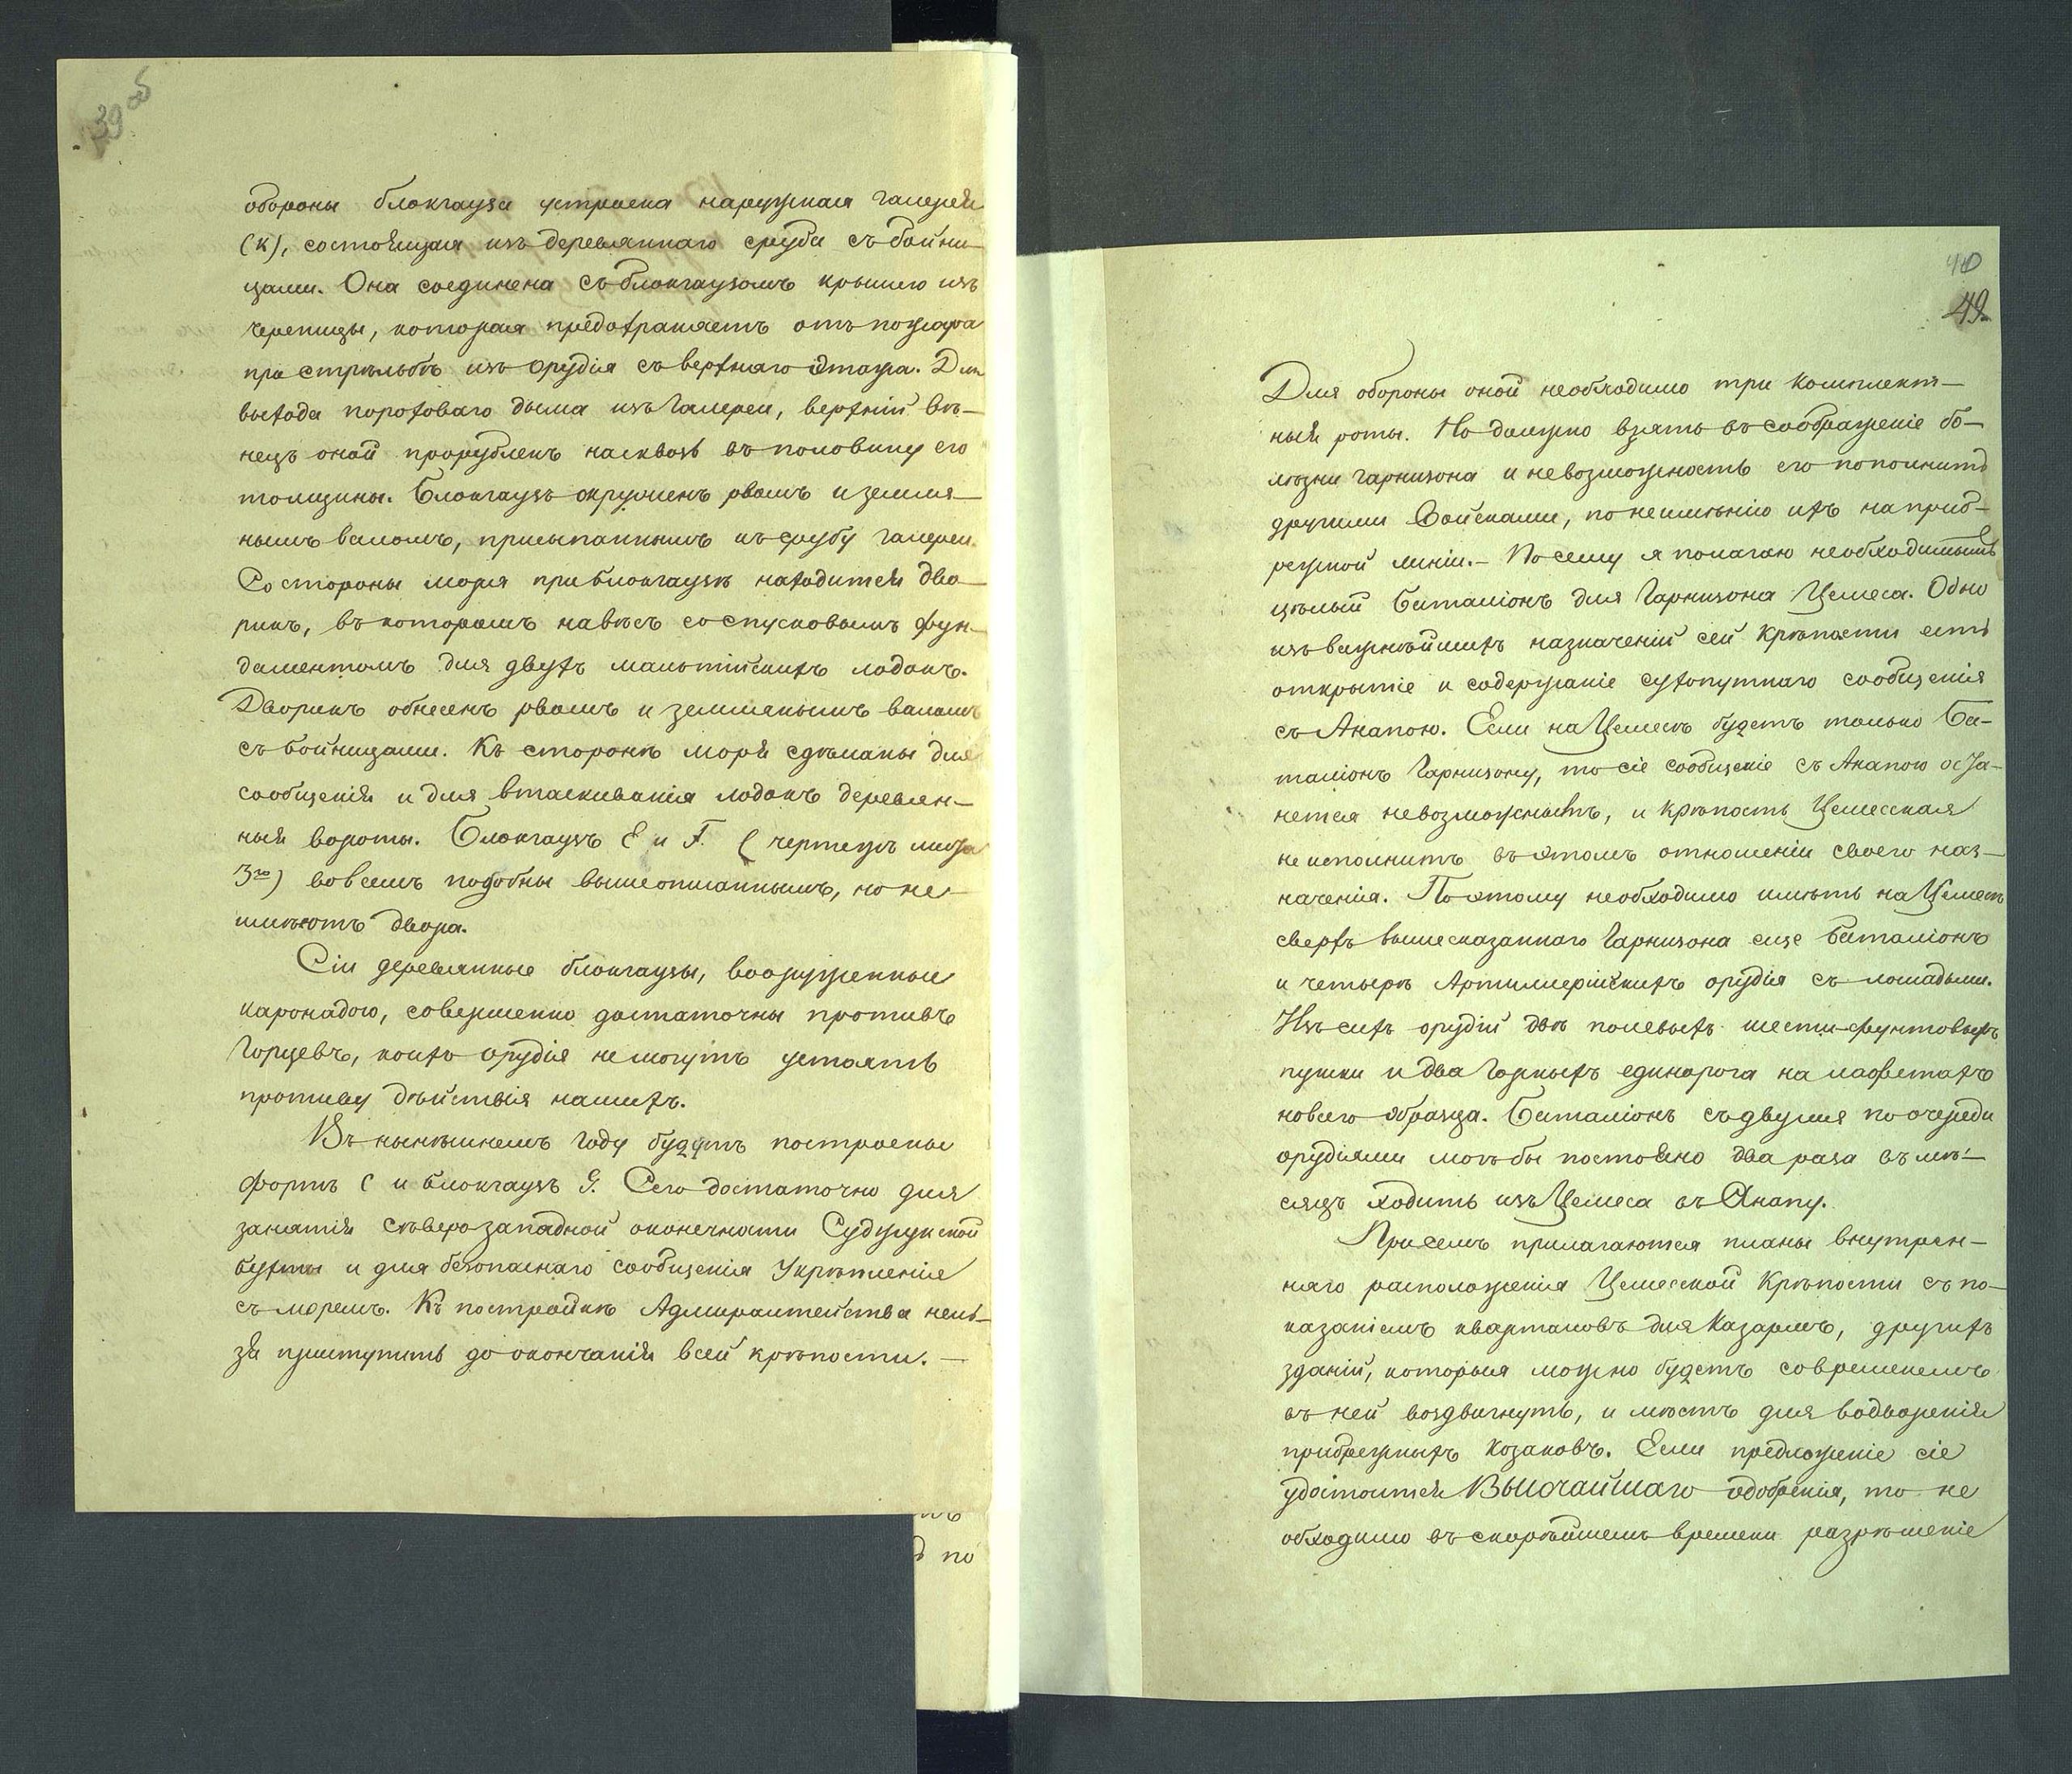 39 об
обороны блокгауза устроена наружная галлерея
(к), состоящая изъ деревяннаго сруба съ бойни-
цами. Она соединена съ блокгаузомъ крышею изъ
черепицы, которая предохраняетъ отъ пожара
при стрѣльбѣ изъ орудія съ верхняго этажа. Для
выхода пороховаго дыма изъ галереи, верхній вѣ-
нецъ оной прорубленъ насквозь въ половину его
толщины. Блокгаузъ окруженъ рвомъ и земля-
нымъ валомъ, присыпаннымъ къ срубу галереи.
Со стороны моря при блокгаузѣ находится дво-
рикъ, въ которомъ навѣсъ со спусковымъ фун-
даментомъ для двухъ мальтійскихъ лодокъ.
Дворикъ обнесенъ рвомъ и землянымъ валомъ
съ бойницами. Къ сторонѣ моря сдѣланы для
сообщенія и для втаскиванія лодокъ деревян-
ныя вороты. Блокгаузъ E и F. (чертежъ листа
3го) вовсемъ подобны вышеописаннымъ, но не
имѣютъ двора.
Сіи деревянные блокгаузы, вооруженные
каронадою, совершенно достаточны противъ
Горцевъ, коихъ орудія не могутъ устоять
противу дѣйствія нашихъ.
Въ нынѣшнемъ году будутъ построены
фортъ C и блокгаузъ G. Сего достаточно для
занятія сѣверозападной оконечности Суджукской
бухты и для безопаснаго сообщенія Укрѣпленія
съ моремъ. Къ постройкѣ Адмиралтейства нель-
зя приступить до окончанія всей крѣпости. —
40
49
Для обороны оной необходимо три комплект-
ныя роты. Но должно взять въ соображеніе бо-
лѣзни гарнизона и невозможность его пополнить
другими Войсками, по неимѣнію ихъ на прибе-
режной линіи. – По сему я полагаю необходимымъ
цѣлый баталіонъ для Гарнизона Цемеса. Одно
изъ важнѣйшихъ назначеній сей крѣпости есть
открытіе и содержаніе сухопутнаго сообщенія
съ Анапою. Если на Цемесѣ будетъ только ба-
таліонъ Гарнизону, то сіе сообщеніе съ Анапою оста-
нется невозможнымъ, и крѣпость Цемесская
не исполнитъ въ этомъ отношеніи своего наз-
наченія. Поэтому необходимо имѣть на Цемесѣ
сверхъ вышесказаннаго Гарнизона еще баталіонъ
и четырѣ Артиллерійскихъ орудія съ лошадьми.
Изъ сихъ орудій двѣ полевыхъ шести-фунтовыхъ
пушки и два Горныхъ единорога на лафетахъ
новаго образца. Баталіонъ съ двумя по очереди
орудіями могъ бы постоянно два раза въ мѣ-
сяцъ ходить изъ Цемеса въ Анапу.
При семъ прилагаются планы внутрен-
няго расположенія Цемесской Крѣпости съ по-
казаніемъ кварталовъ для Казармъ, другихъ
зданій, которыя можно будетъ современемъ
въ ней воздвигнуть, и мѣстъ для водворенія
прибрежныхъ козаковъ. Если предложеніе сіе
удостоится Высочайшаго одобренія, то не
обходимо въ скорѣйшемъ времени разрѣшеніе
по